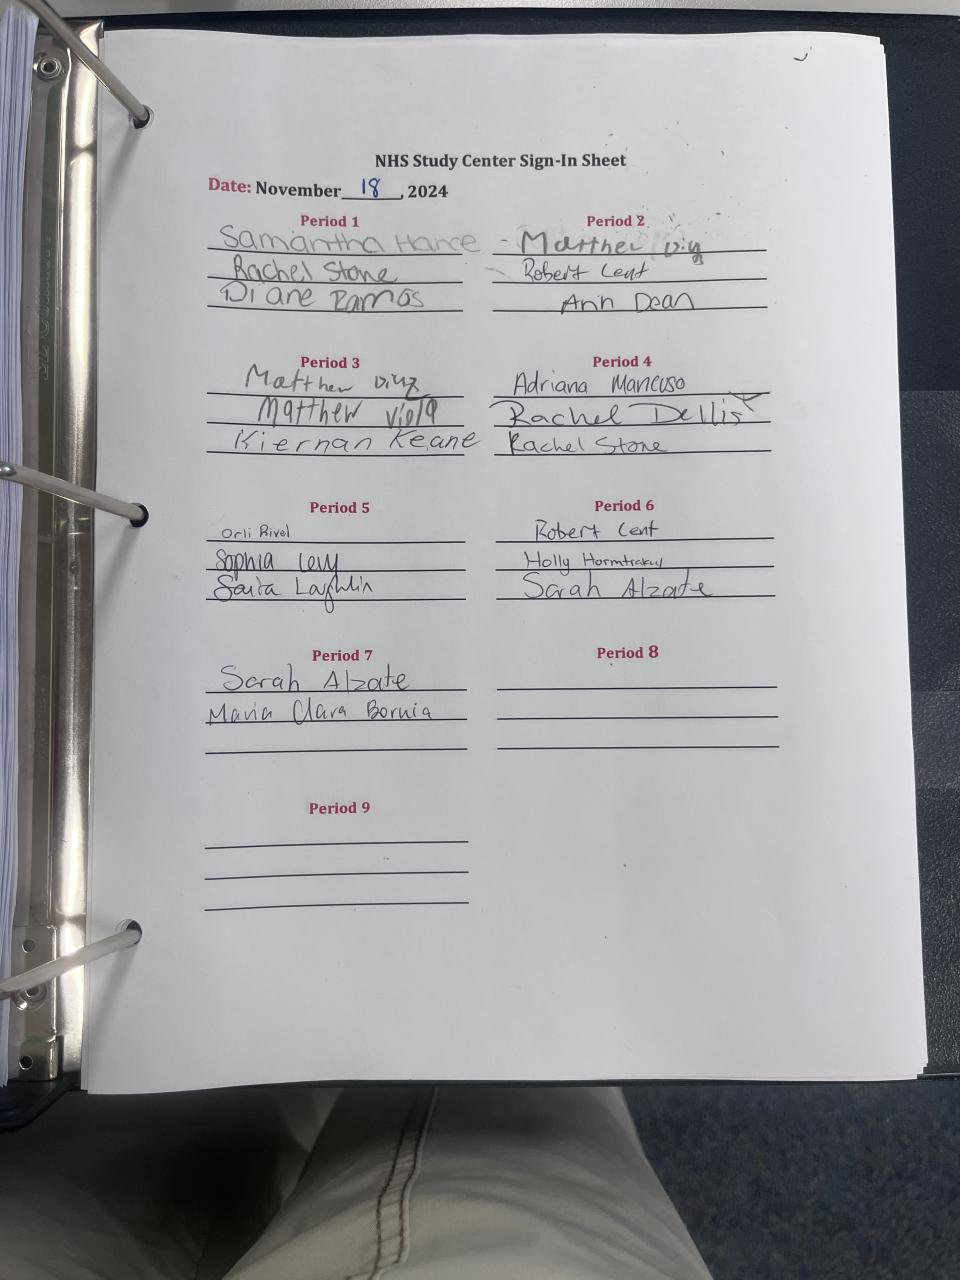 NHS Study Center Sign-In Sheet
Date: November 18, 2024
Period 1
Samantha Hance
Rachel Stone
Diane Ramos
Period 2
Matthew
Robert Lent
Ann Dean
Period 3
Matthew
Matthew Viola
Kiernan Keane
Period 4
Adriana Mancuso
Rachel Dellis
Rachel Stone
Period 5
Orli Rivel
Sophia Levy
Laughlin
Period 6
Robert Lent
Holly
Sarah Alzate
Period 7
Sarah Alzate
Maria Clara Bornia
Period 8
Period 9